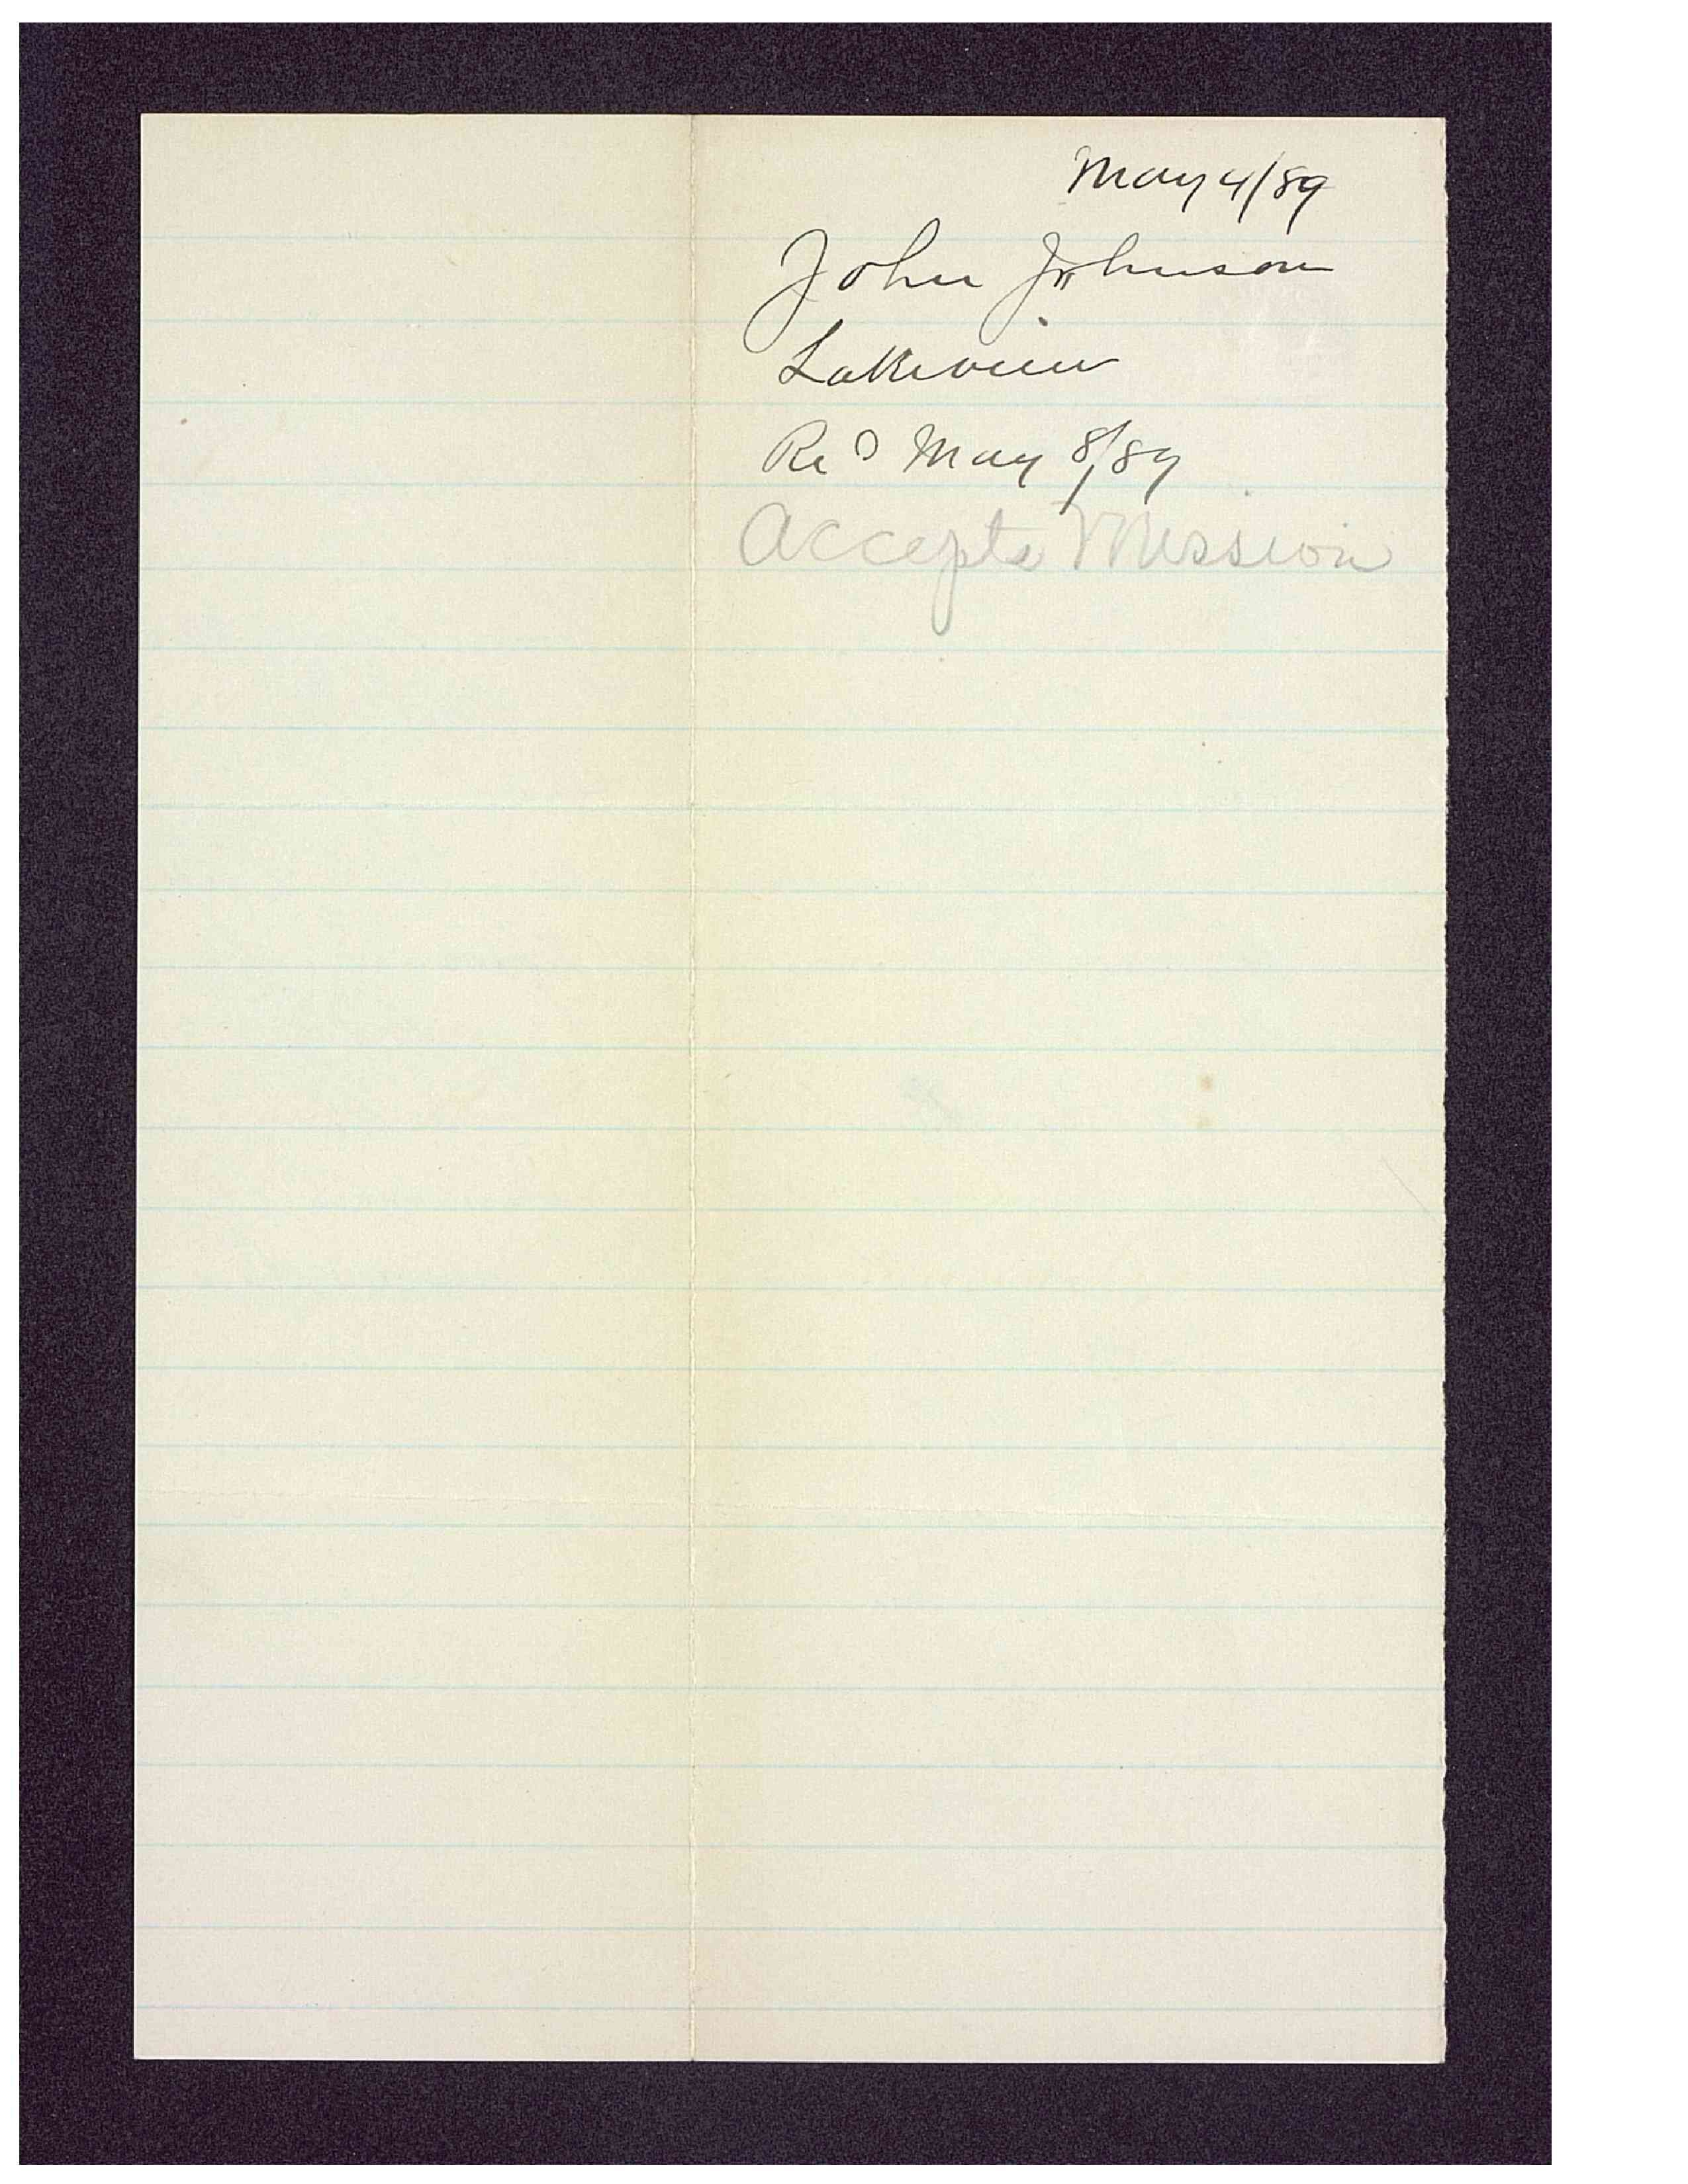 May 4/89
John Johnson
Lakeview
Recd May 8/89
Accepts Mission